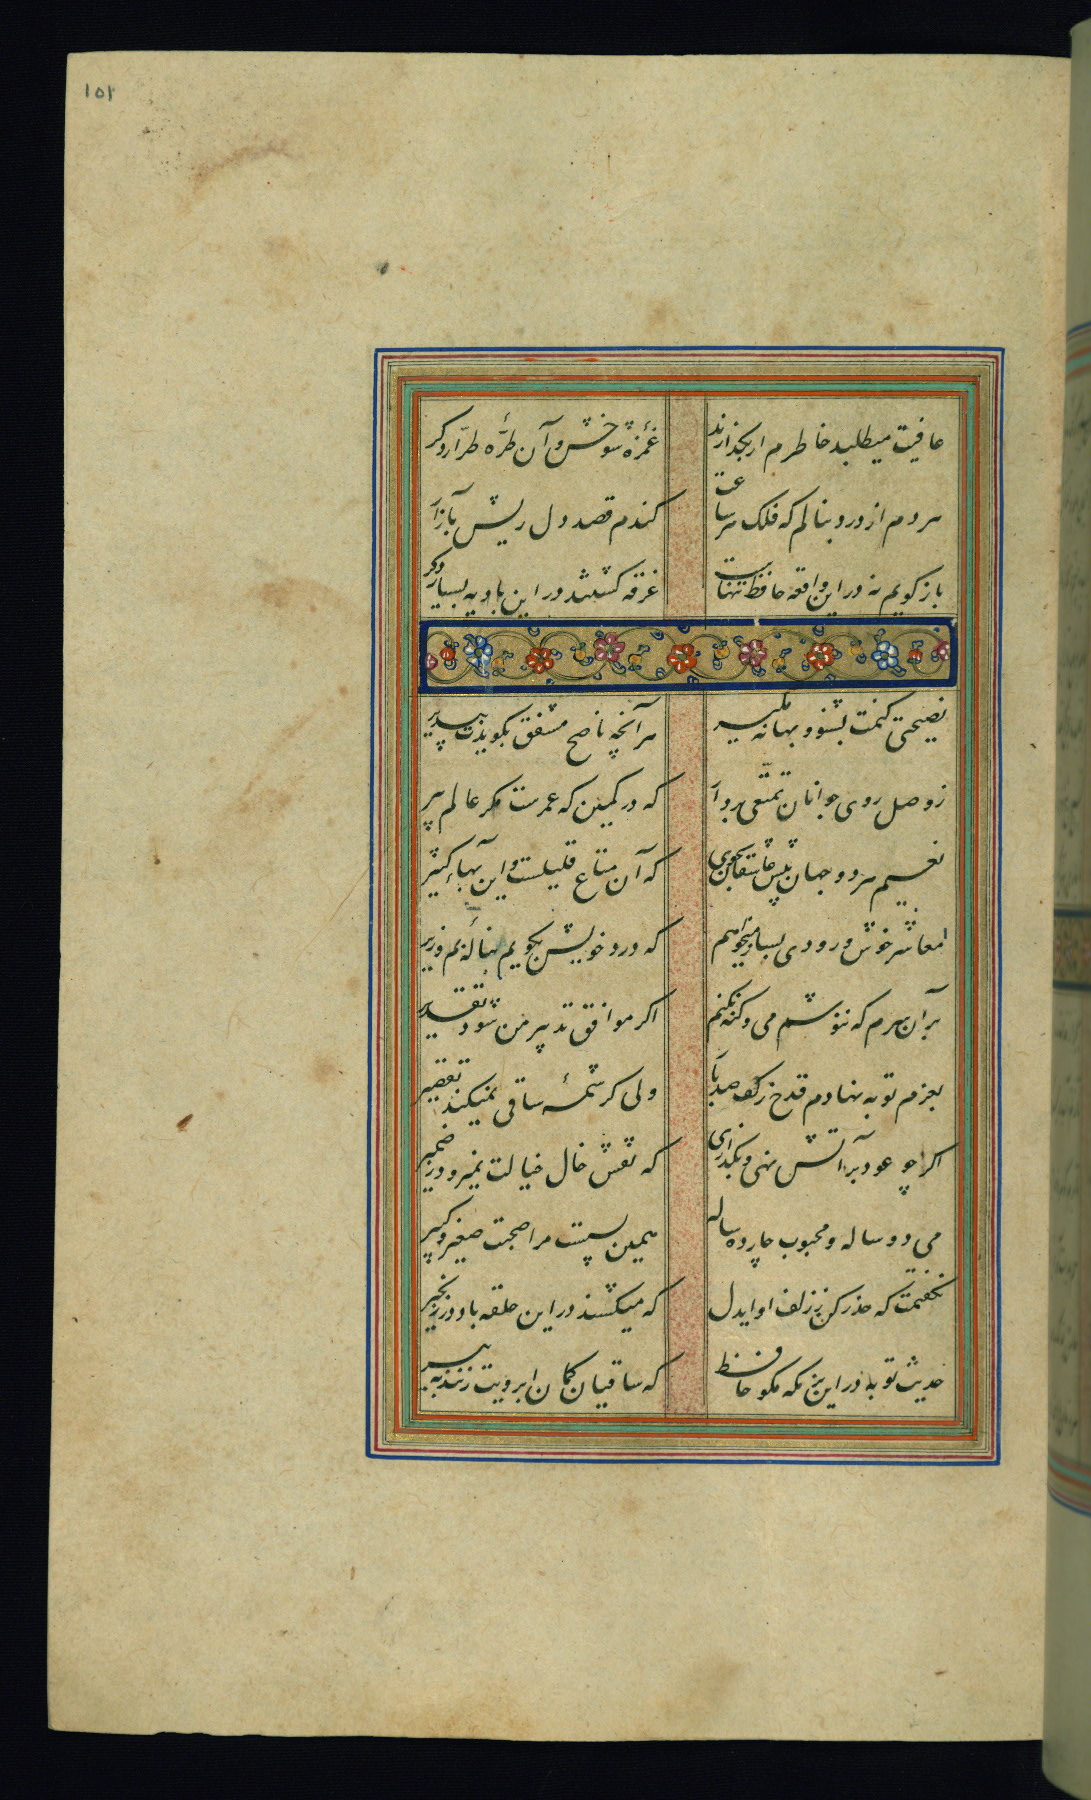 ۱۵۲
عافیت میطلبد خاطرم ار بگذارند غمزه شوخش و آن طرّهٔ طرّار دکر
هر دم از درد بنالم که فلک هر ساعت کندم قصد دل ریش بآزار
باز کویم نه در این واقعه حافظ تنهاست غرقه کشتند در این بادیه بسیار دکر
نصیحتی کنمت بشنو و بهانه مگیر هر آنچه ناصح مشفق بگویدت بپذیر
ز وصل روی جوانان تمتّعی بردار که در کمین که عمرست مکر عالم پیر
نعیم هر دو جهان پیش عاشقان بجوی که آن متاع قلیلست و این بهاء کثیر
معاشر خوش و رودی بساز میخواهم که درد خویش بکویم بنالهٔ بم و زیر
بر آن سرم که ننوشم می و گنه نکنم اکر موافق تدبیر من شود تقدیر
بعزم توبه نهادم قدح ز کف صد بار ولی کرشمهٔ ساقی نمیکند تقصیر
اکر چو عود بر آتش نهی و بگذاری که نقش خال خیالت نمیرود ز ضمیر
می دو ساله و محبوب چارده ساله همین بسست مرا صحبت صغیر و کبیر
نکفتمت که حذر کن ز زلف او ایدل که میکشند در این حلقه باد در زنجیر
حدیث توبه در این بزمکه مکو حافظ که ساقیان کمان ابرویت زنند به تیر